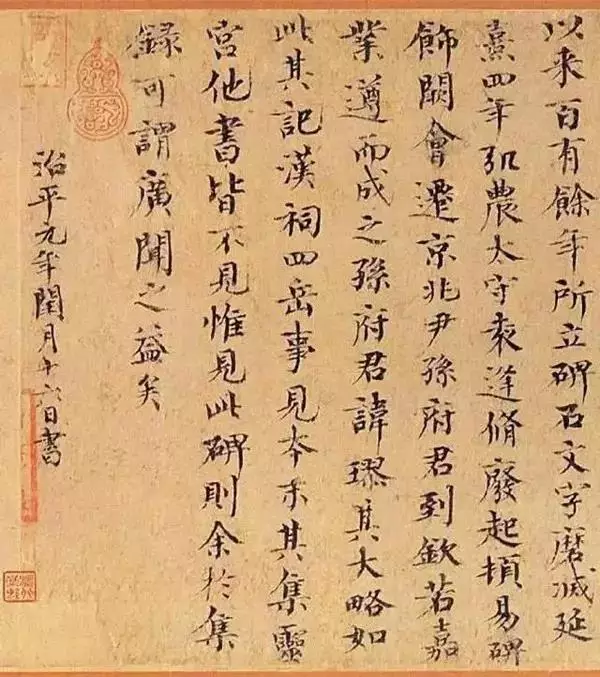 以来百有餘年所立碑石文字磨减延
熹四年弘農太守袁逢脩廢起頓易碑
飾闕會遷京兆尹孫府君到欽若嘉
業遵而成之孫府君諱璆其大略如
此其記漢祠四岳事見本末其集靈
宫他書皆不見惟見此碑則余於集
録可謂廣聞之益矣
治平元年閏月十六日書